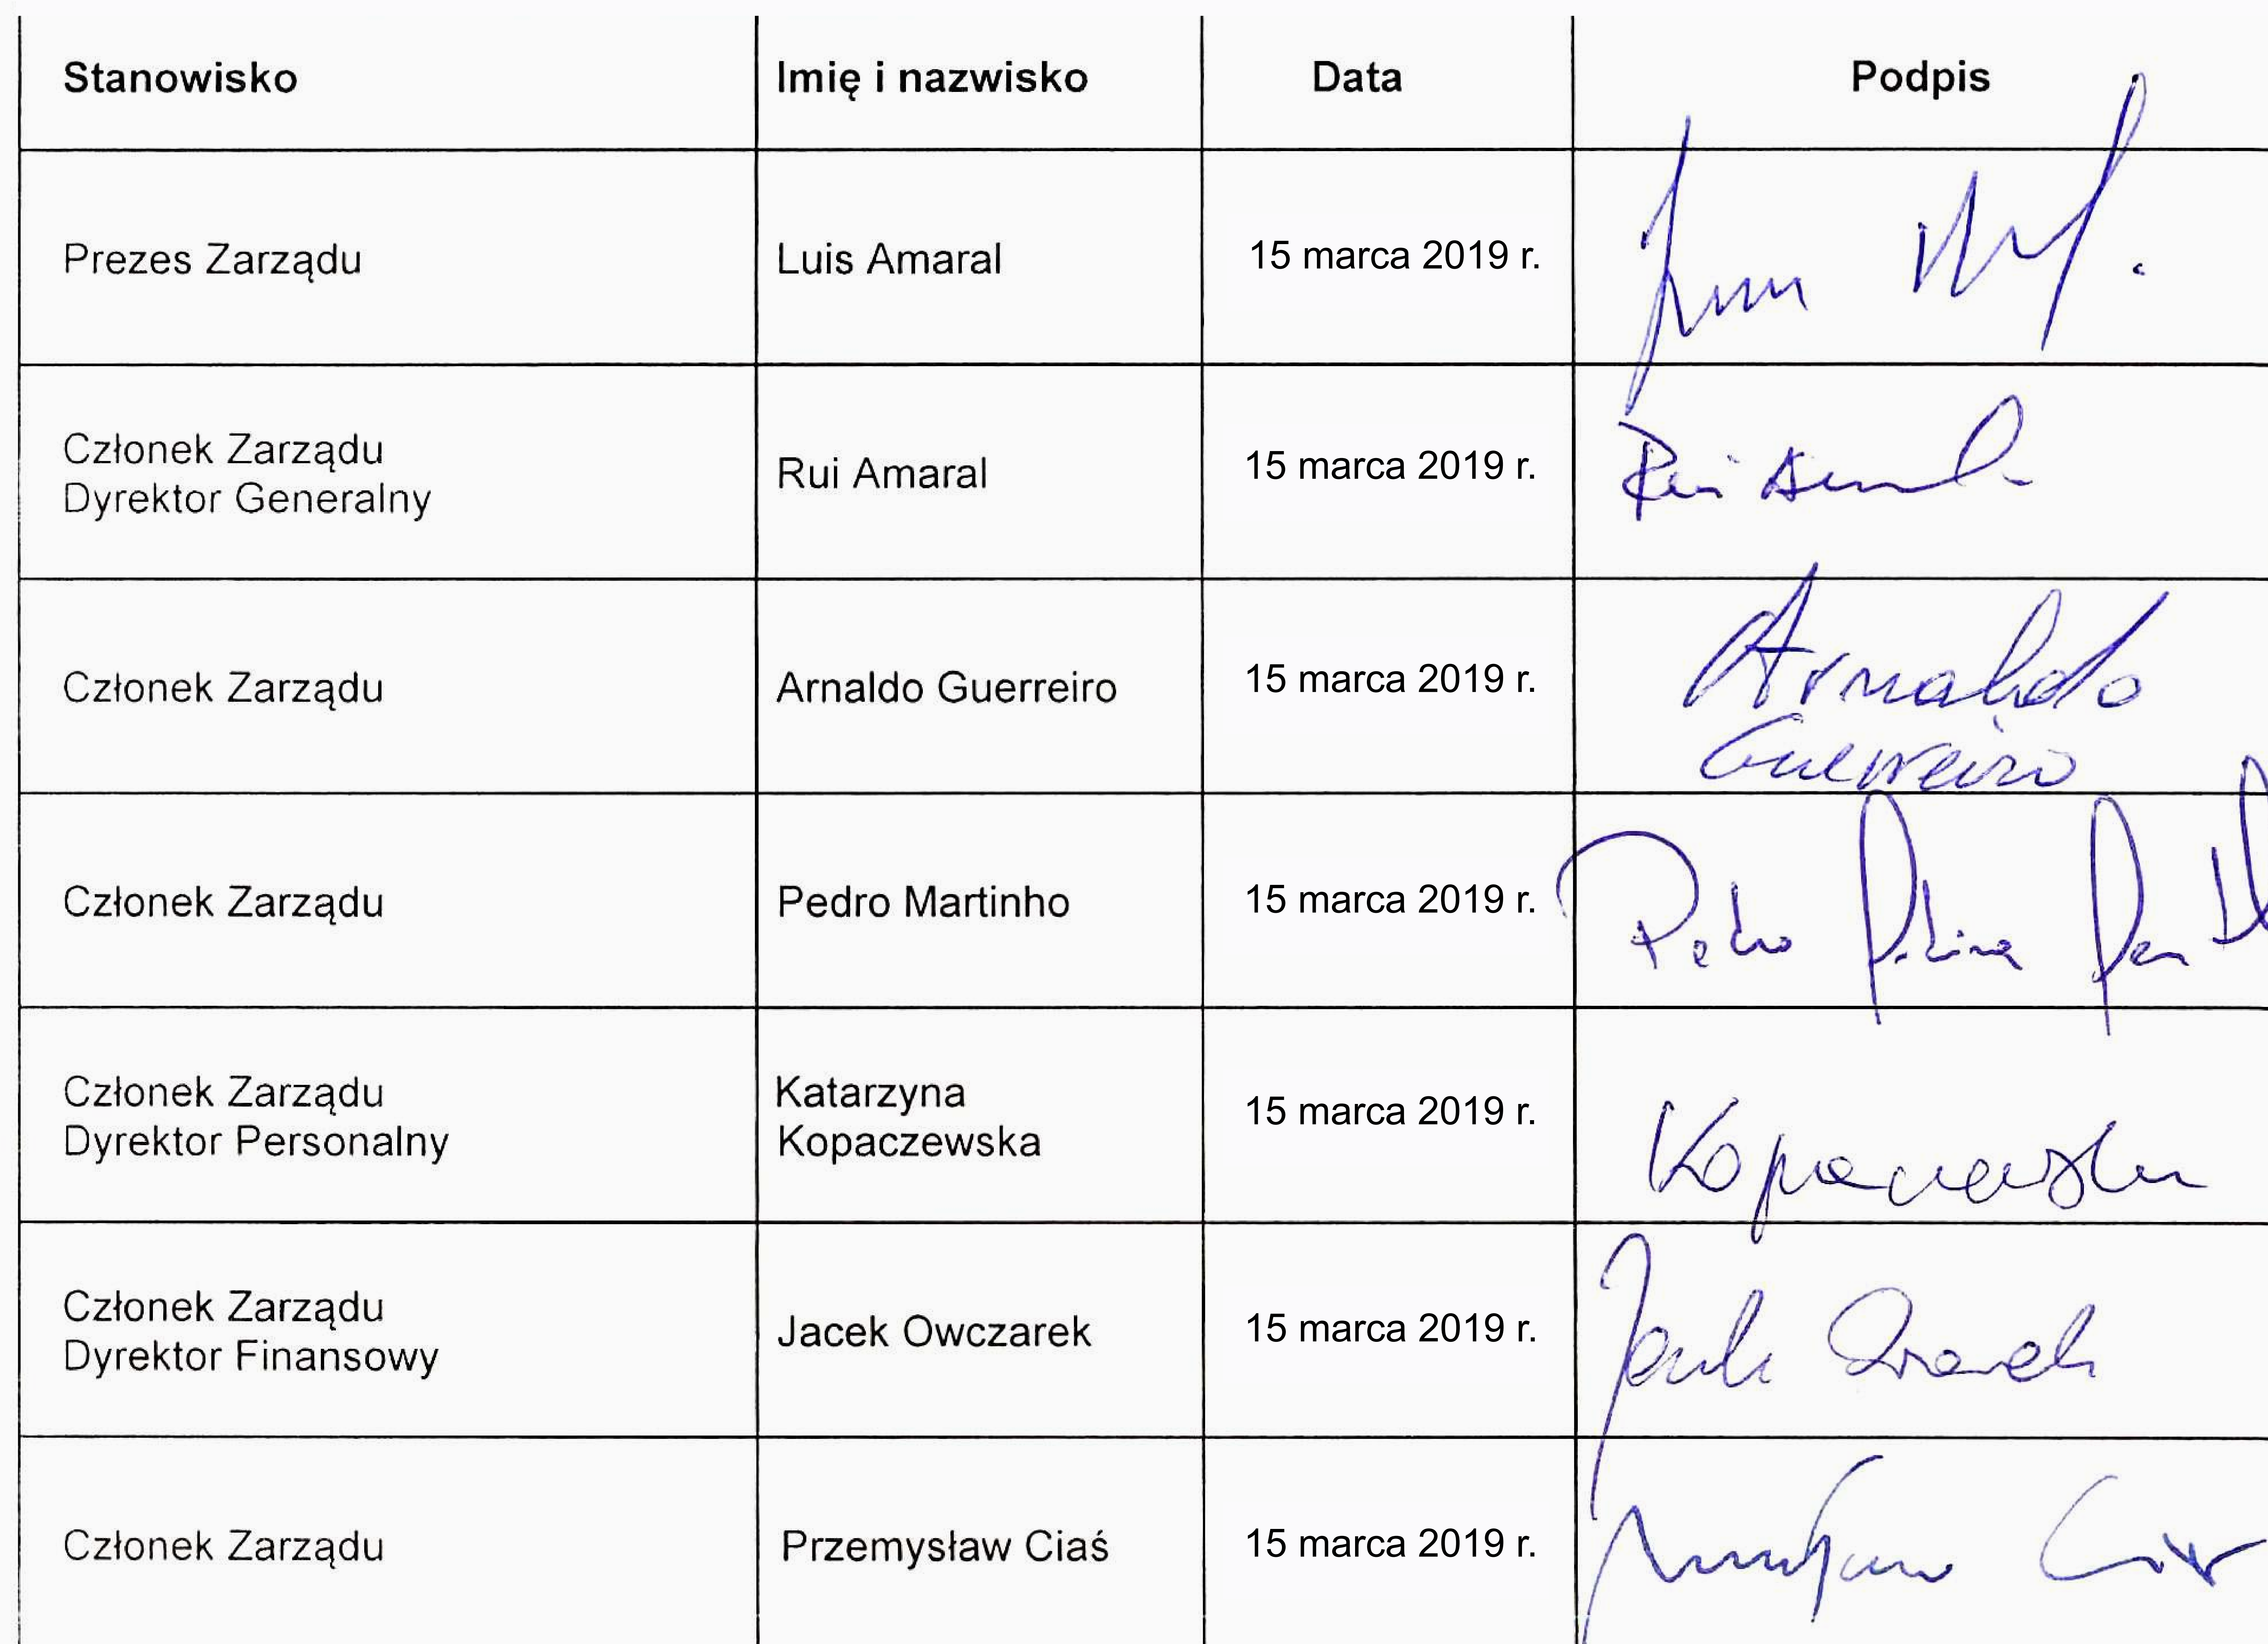 Stanowisko Imię i nazwisko Data Podpis
Prezes Zarządu Luis Amaral 15 marca 2019 r.
Członek Zarządu
Dyrektor Generalny Rui Amaral 15 marca 2019 r. Rui
Członek Zarządu Arnaldo Guerreiro 15 marca 2019 r. Arnaldo
Guerreiro
Członek Zarządu Pedro Martinho 15 marca 2019 r. Pedro
Członek Zarządu Katarzyna
Dyrektor Personalny Kopaczewska 15 marca 2019 r. Kopaczewska
Członek Zarządu
Dyrektor Finansowy Jacek Owczarek 15 marca 2019 r.
Członek Zarządu Przemysław Ciaś 15 marca 2019 r.